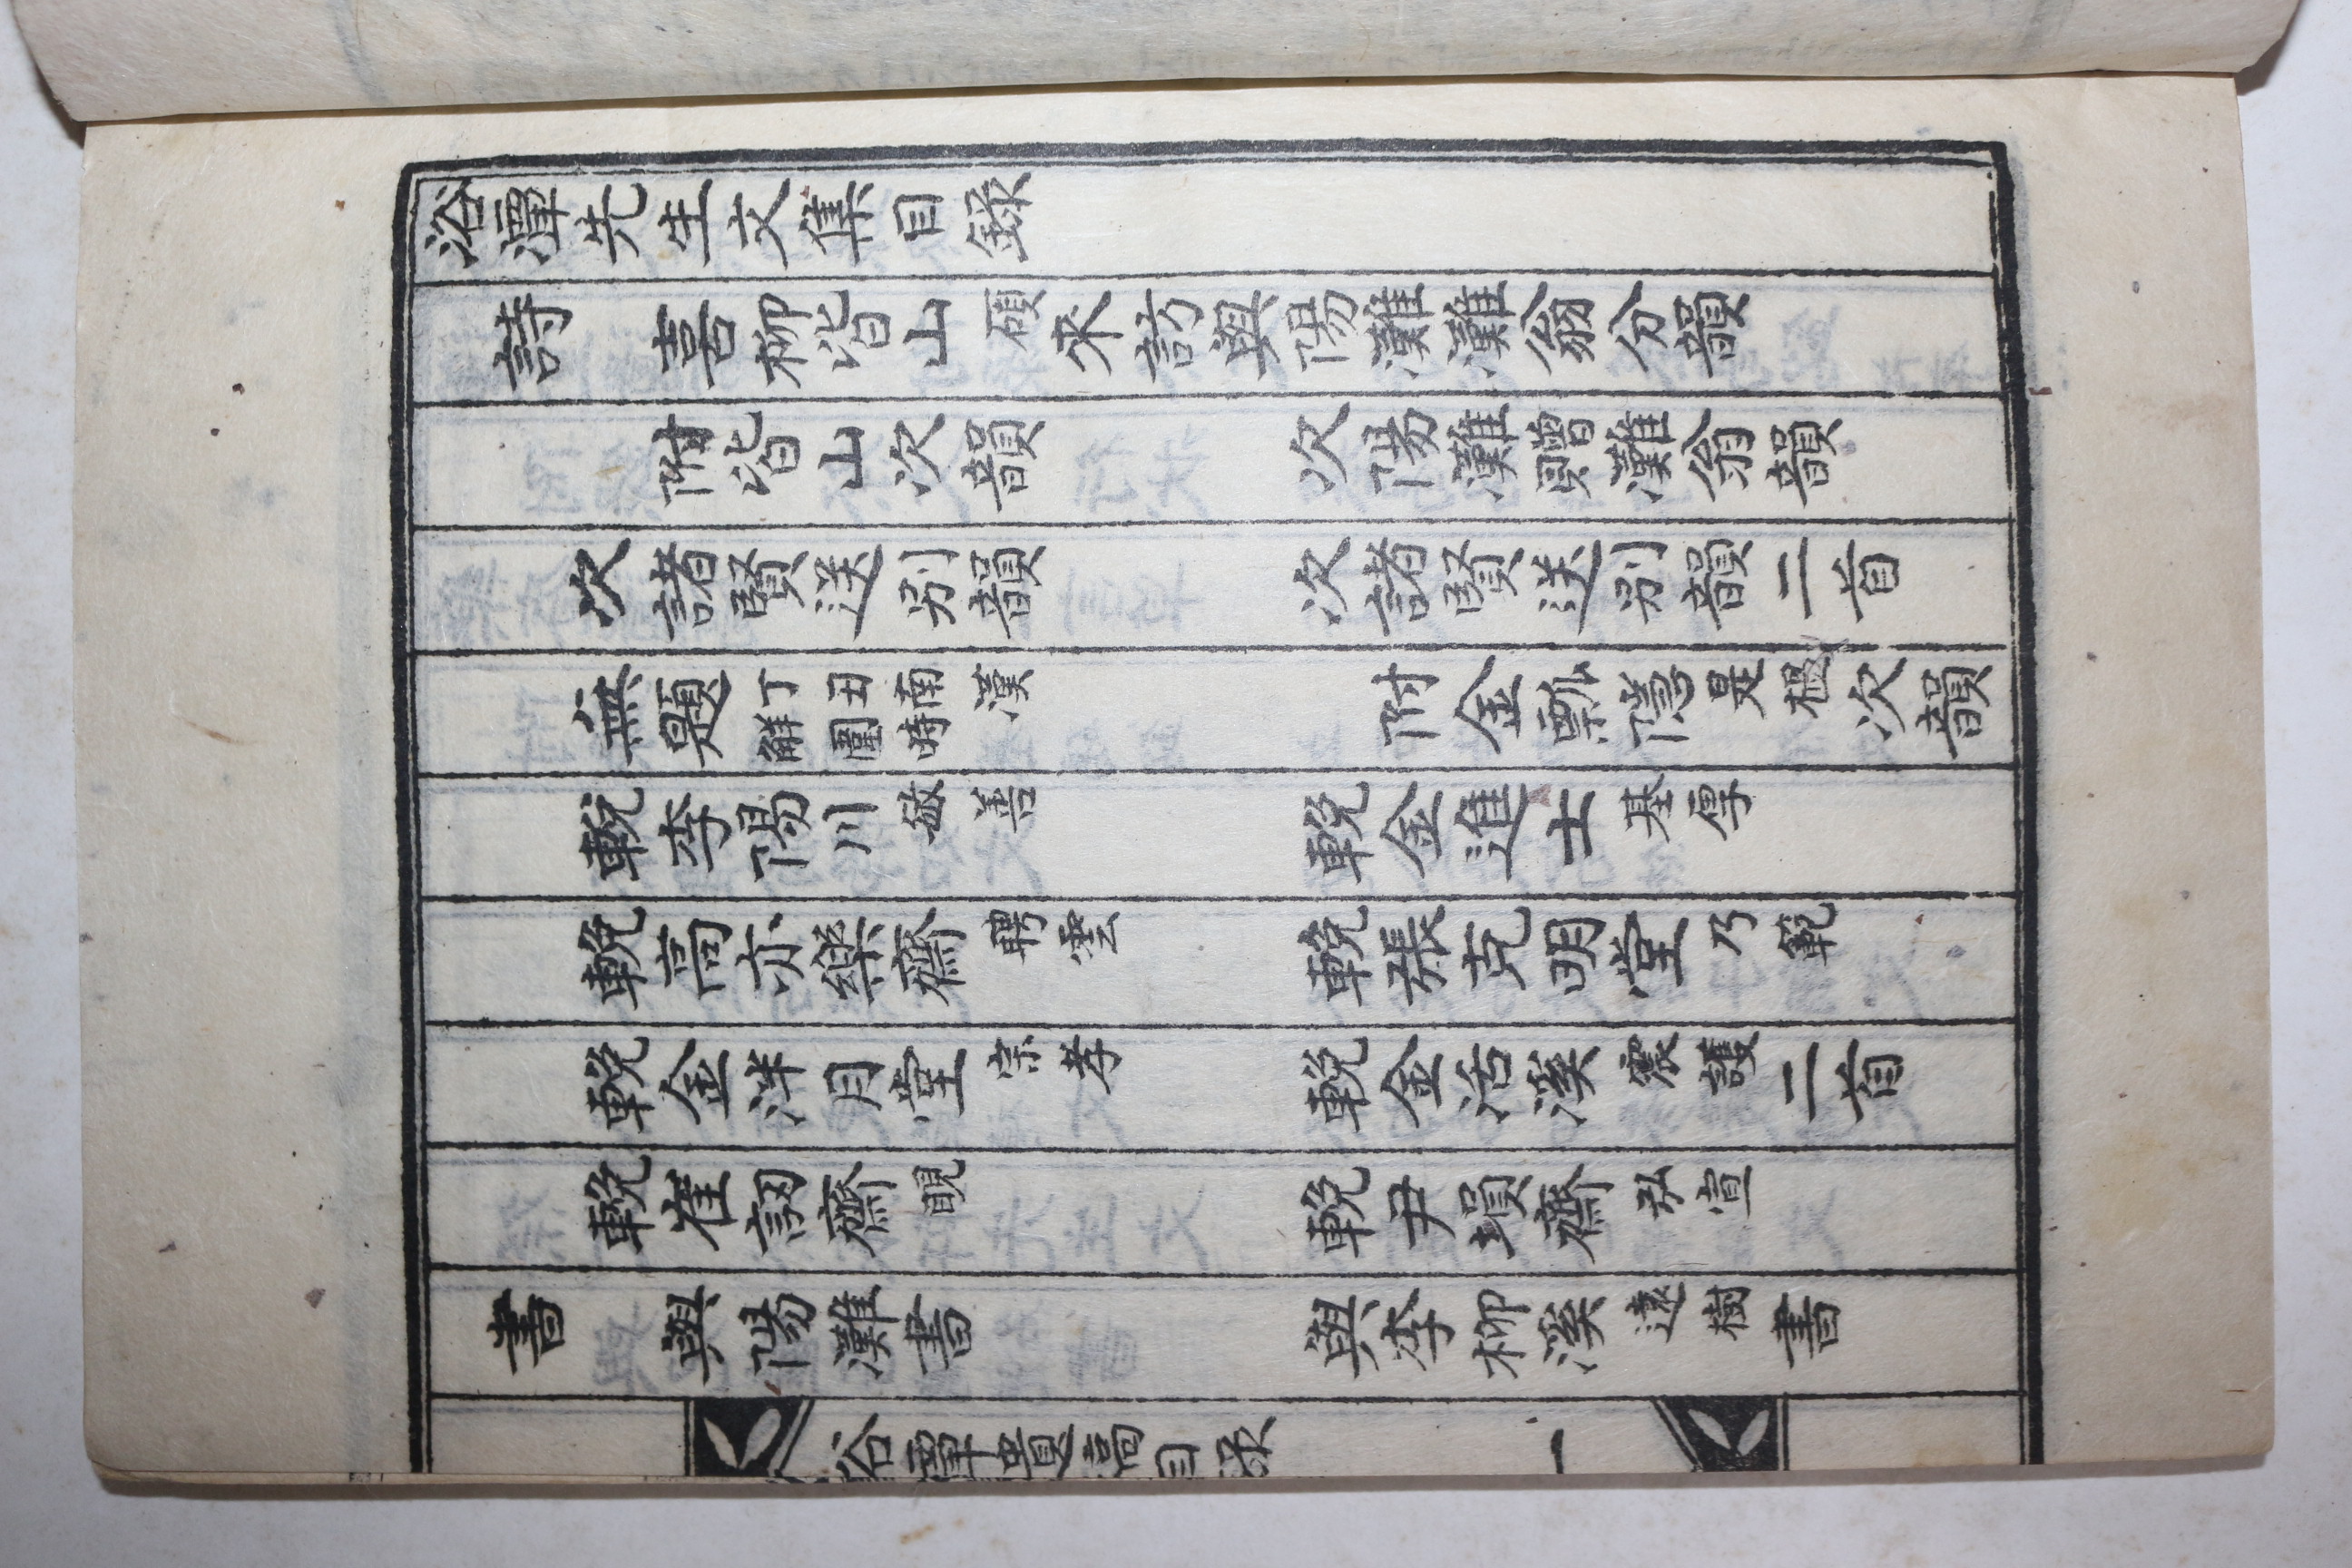 浴潭先生文集目錄
詩 喜柳皆山碩來訪與陽灘灘翁分韻
附皆山次韻 次陽灘贈灘翁韻
次諸賢送別韻 次諸賢送別韻二首
無題丁丑南漢解圍時 附金瓢隱是榲次韻
輓李陽川敏善 輓金進士基厚
輓高亦樂齋聘雲 輓張克明堂乃範
輓金洋月堂宗孝 輓金活溪 護二首
輓崔訒齋晛 輓尹塤齋弘宣
書 與陽灘書 與李柳溪遠樹書
浴潭實高目录 一